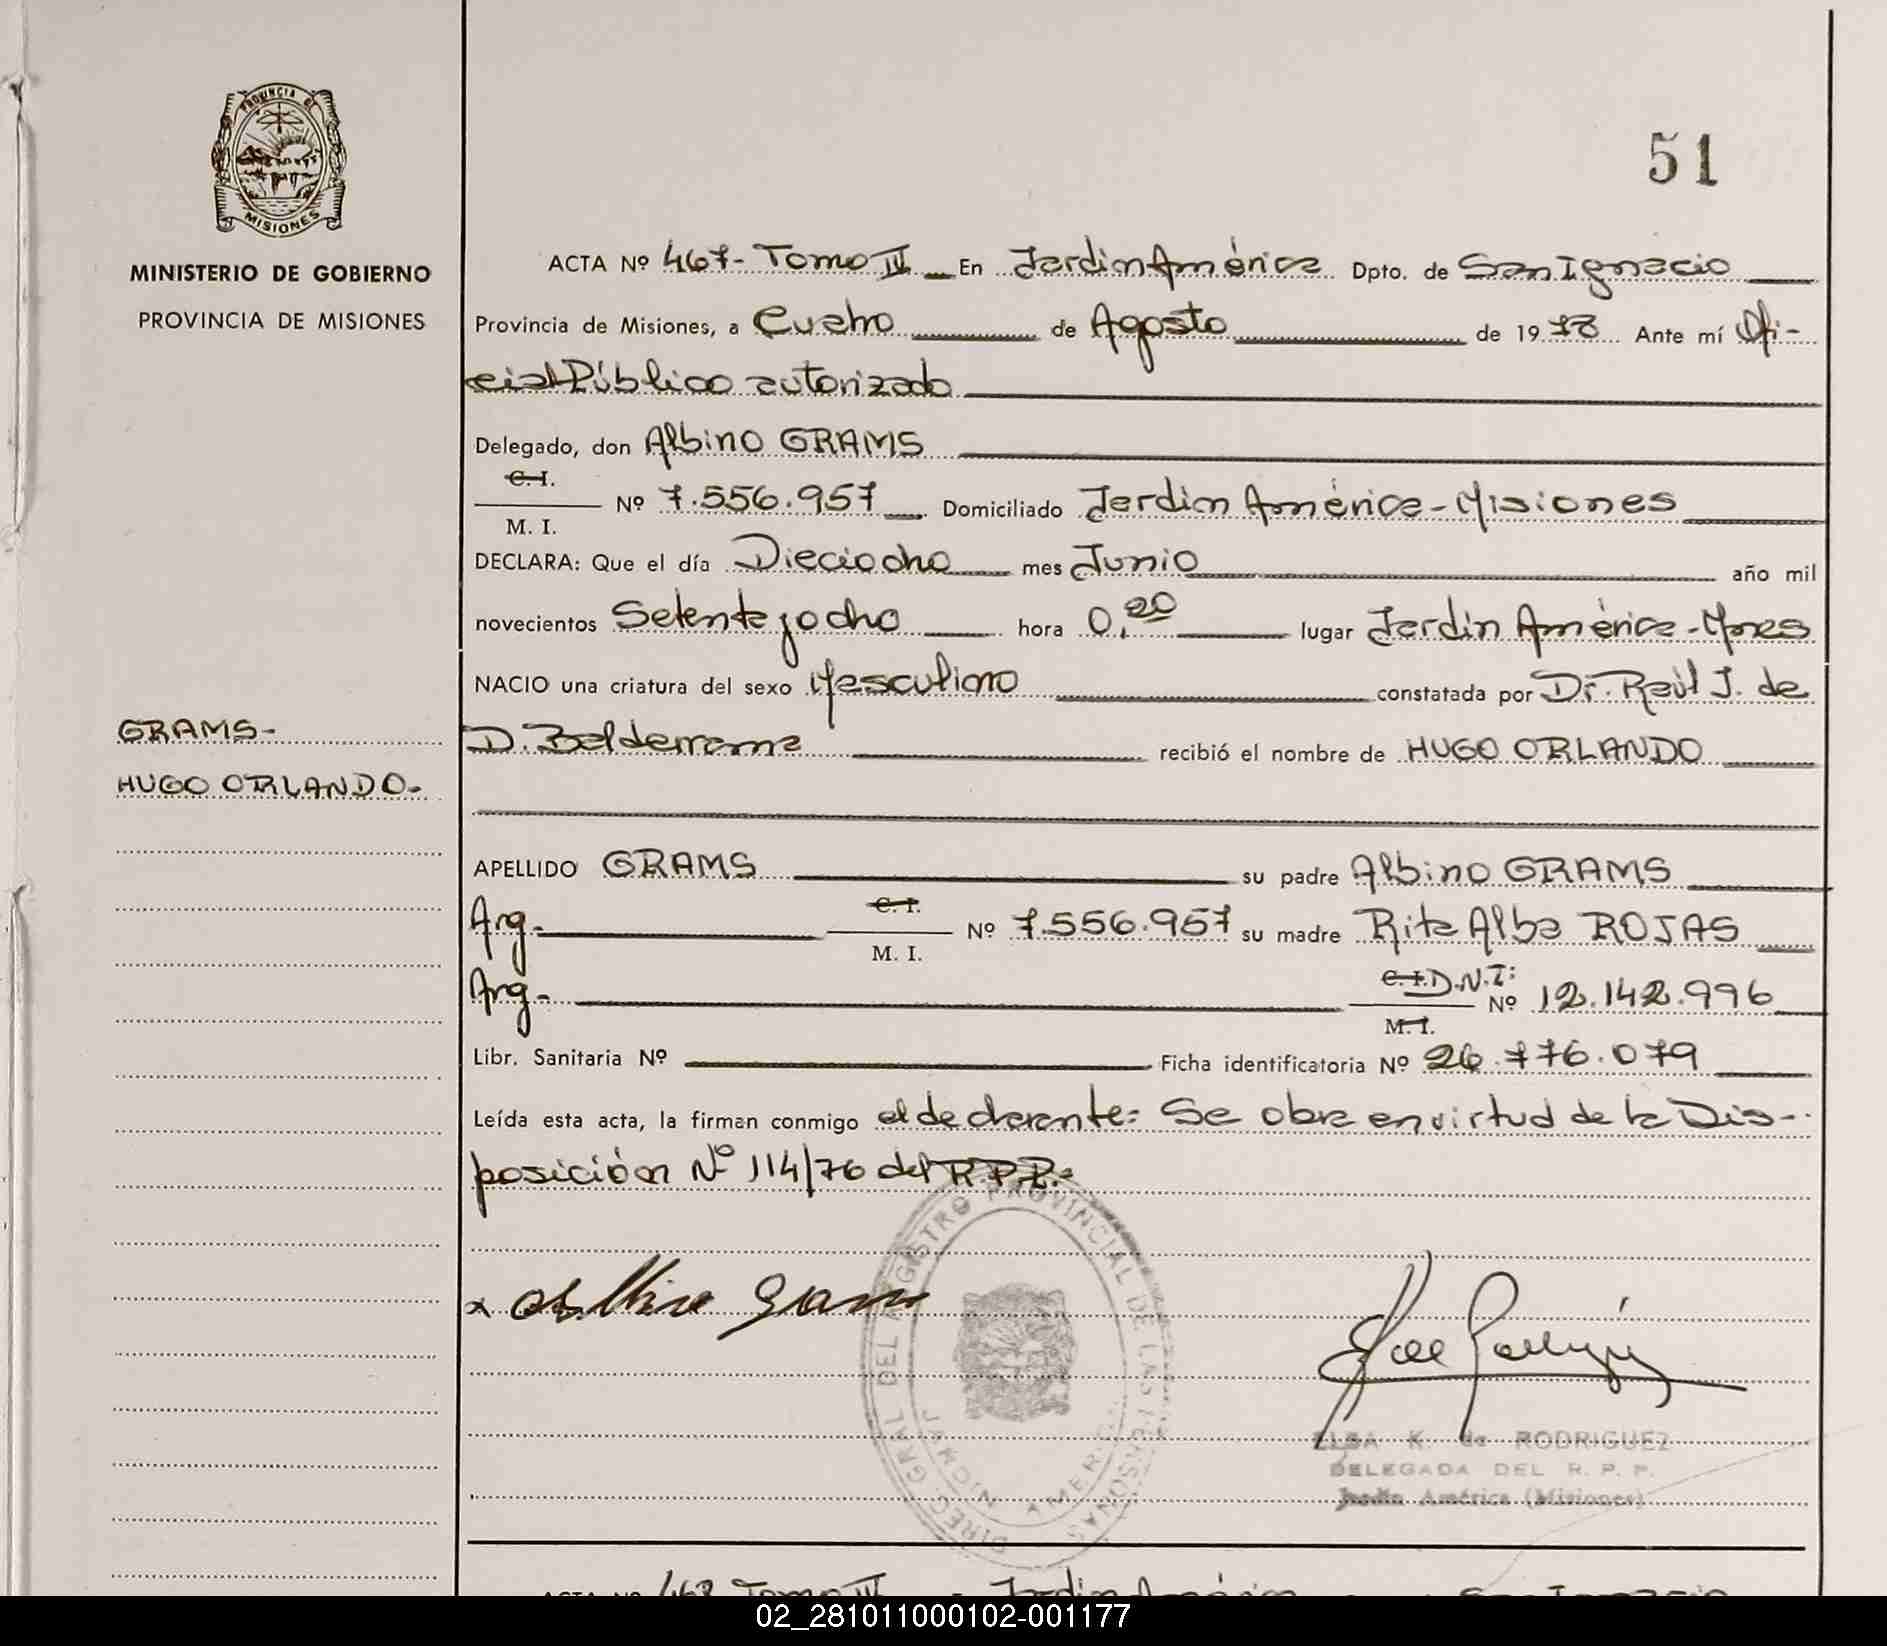 PROVINCIA DE
MISIONES
MINISTERIO DE GOBIERNO
PROVINCIA DE MISIONES
51
ACTA Nº 467- Tomo IV En Jardín América Dpto. de San Ignacio
Provincia de Misiones, a Cuatro de Agosto de 1978 Ante mí Ofi-
cial Público autorizado
Delegado, don Albino GRAMS
C. I.
M. I. Nº 7.556.957 Domiciliado Jardín América-Misiones
DECLARA: Que el día Dieciocho mes Junio año mil
novecientos Setenta y ocho hora 0,20 lugar Jardín América-Mnes
NACIO una criatura del sexo Masculino constatada por Dr. Raúl J. de
D. Balderrama recibió el nombre de HUGO ORLANDO
GRAMS-
HUGO ORLANDO-
APELLIDO GRAMS su padre Albino GRAMS
Arg- C. I. M. I. Nº 7.556.957 su madre Rita Alba ROJAS
Arg- C. I. D.N.I: M. I. Nº 12.142.996
Libr. Sanitaria Nº Ficha identificatoria Nº 26.776.079
Leída esta acta, la firman conmigo el declarante: Se obra en virtud de la Dis-
posición Nº 114/76 del R.P.P.-
DIREC. GRAL. DEL REGISTRO PROVINCIAL DE LAS PERSONAS
JARDIN AMERICA
x Albino Grams
ELSA K. de RODRIGUEZ
DELEGADA DEL R. P. P.
Jardín América (Misiones)
ACTA Nº 468 Tomo IV Jardín América San Ignacio
02_281011000102-001177